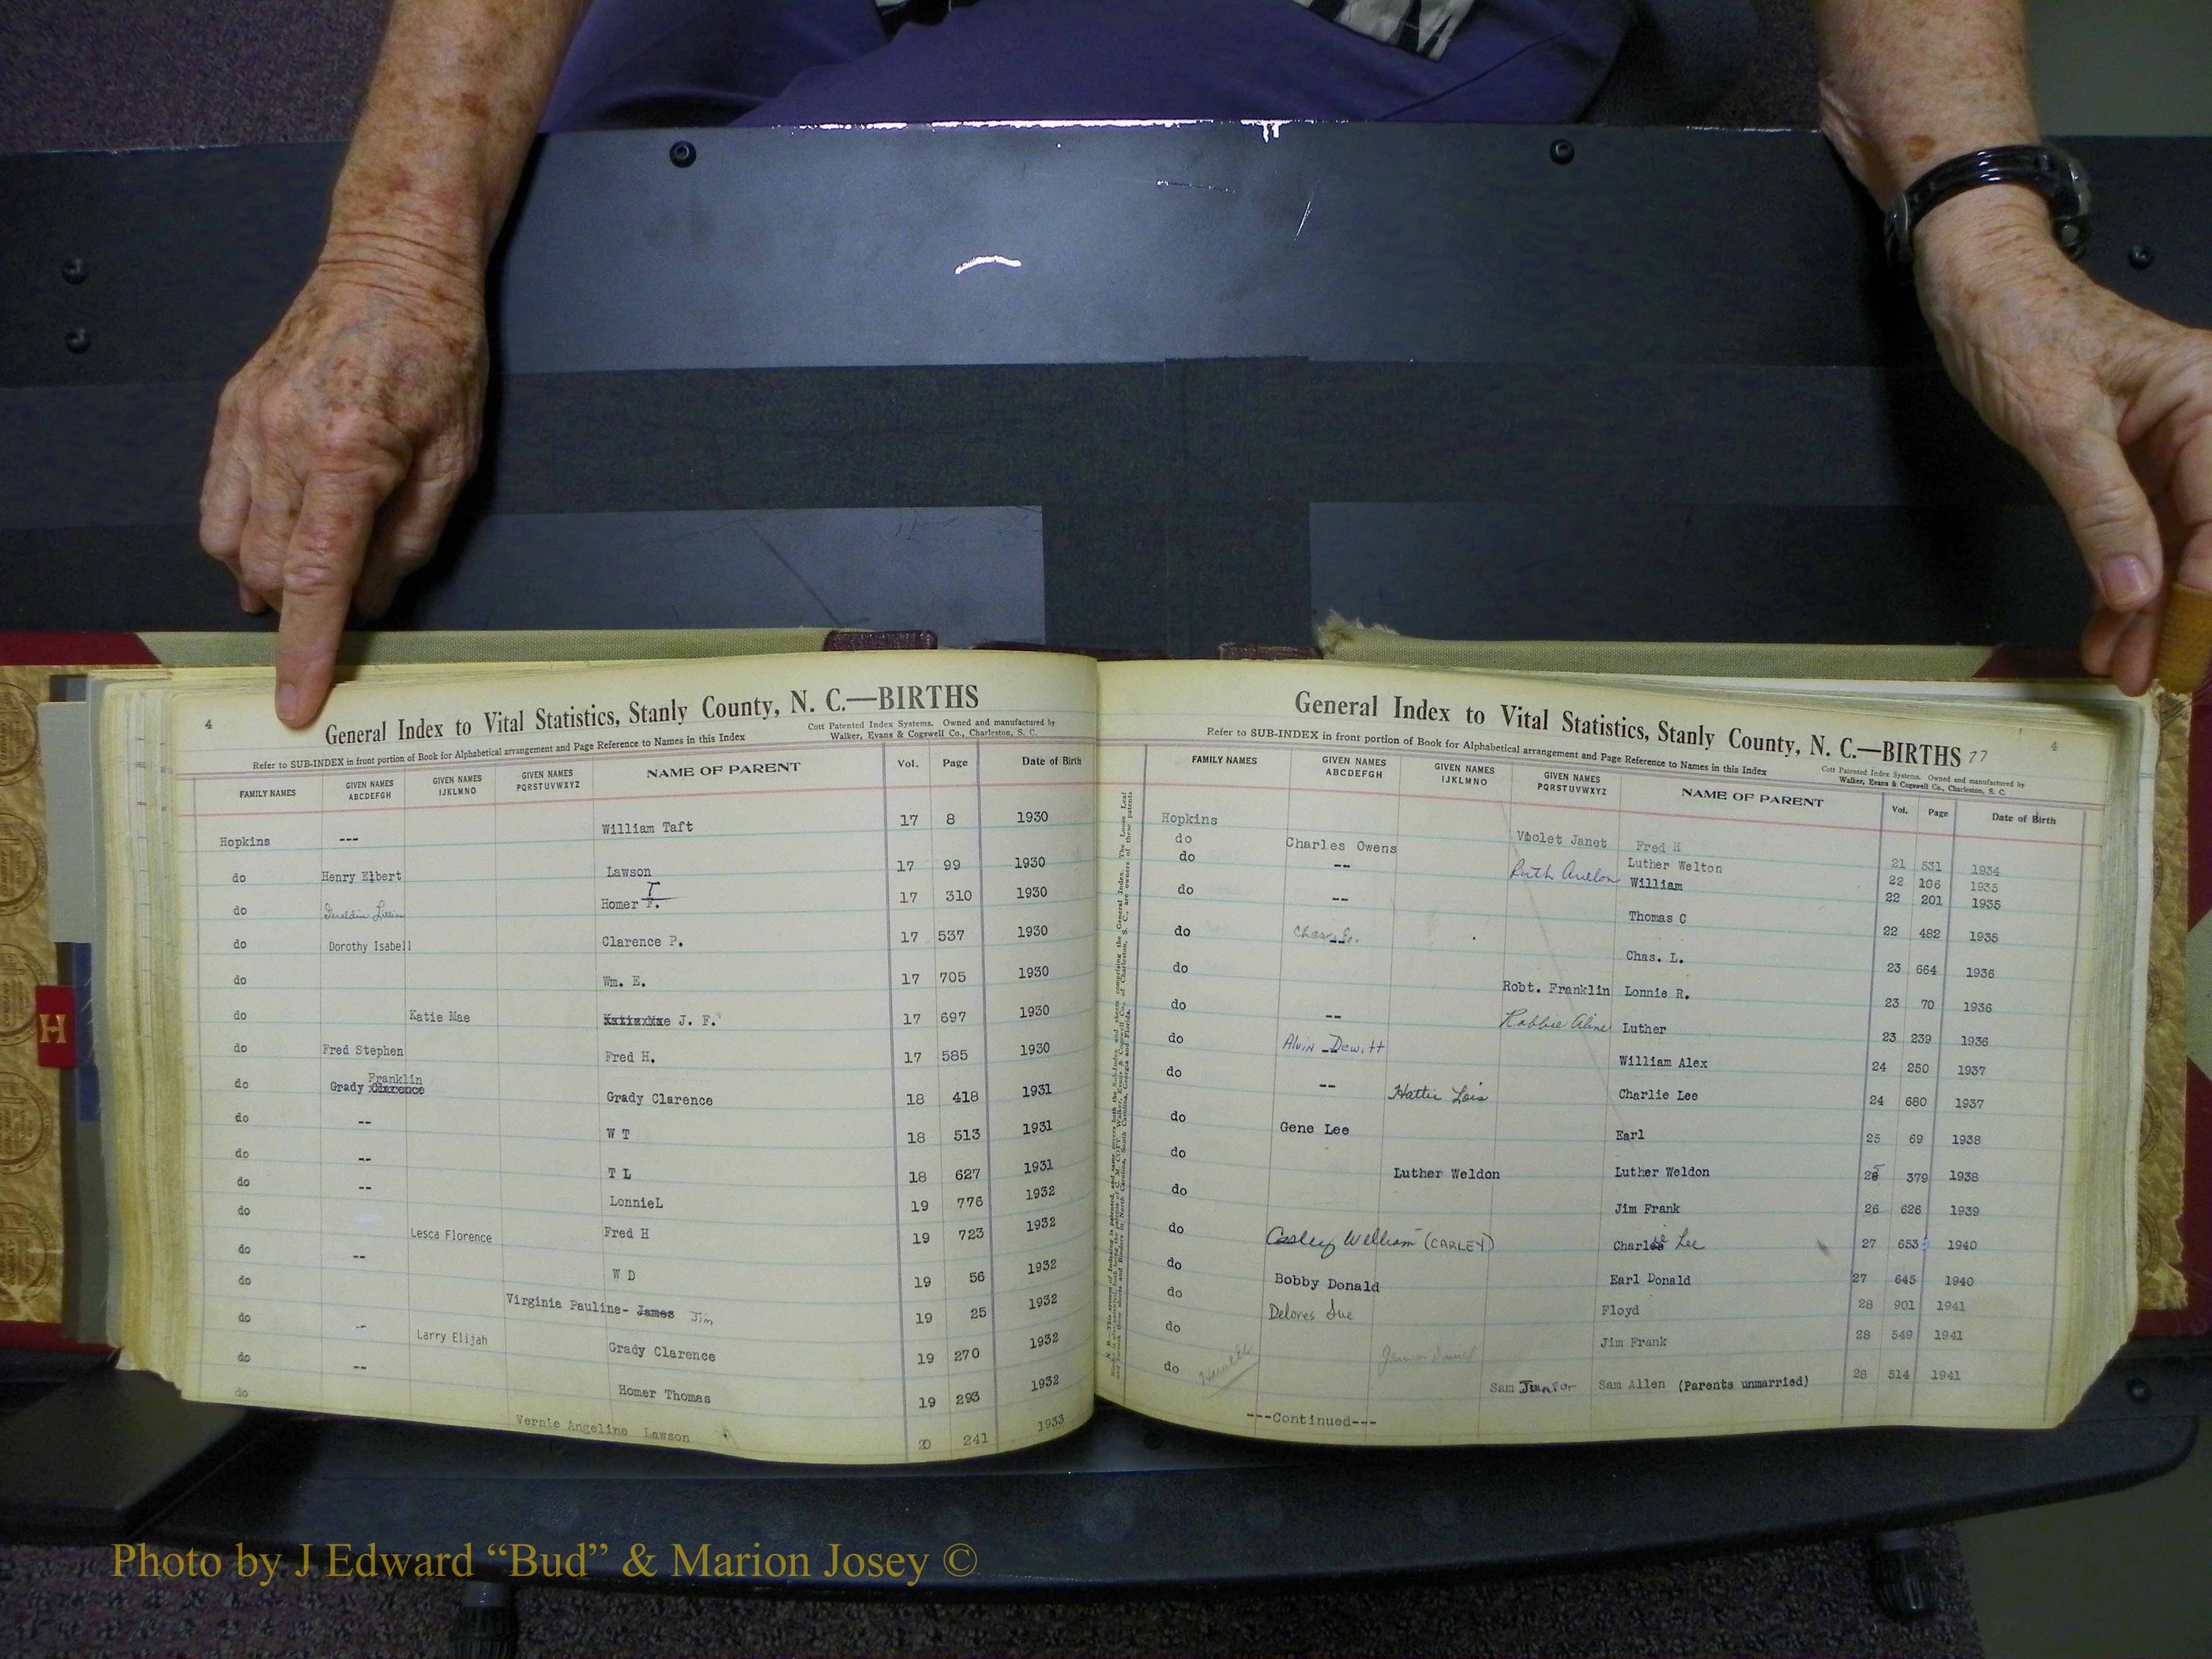 4
General Index to Vital Statistics, Stanly County, N. C.—BIRTHS
Refer to SUB-INDEX in front portion of Book for Alphabetical arrangement and Page Reference to Names in this Index
Cott Patented Index Systems. Owned and manufactured by
Walker, Evans & Cogswell Co., Charleston, S. C.
FAMILY NAMES GIVEN NAMES ABCDEFGH GIVEN NAMES IJKLMNO GIVEN NAMES PQRSTUVWXYZ NAME OF PARENT Vol. Page Date of Birth
Hopkins --- William Taft 17 8 1930
do Henry Elbert Lawson 17 99 1930
do Geraldine Homer T. 17 310 1930
do Dorothy Isabell Clarence P. 17 537 1930
do Wm. E. 17 705 1930
do Katie Mae J. F. 17 697 1930
do Fred Stephen Fred H. 17 585 1930
do Grady Franklin Clarence Grady Clarence 18 418 1931
do -- W T 18 513 1931
do -- T L 18 627 1931
do -- LonnieL 19 776 1932
do Lesca Florence Fred H 19 723 1932
do -- W D 19 56 1932
do Virginia Pauline- James Jim 19 25 1932
do -- Larry Elijah Grady Clarence 19 270 1932
do -- Homer Thomas 19 293 1932
do Vernie Angeline Lawson 20 241 1933
H
General Index to Vital Statistics, Stanly County, N. C.—BIRTHS 77
4
Refer to SUB-INDEX in front portion of Book for Alphabetical arrangement and Page Reference to Names in this Index
Cott Patented Index Systems. Owned and manufactured by
Walker, Evans & Cogswell Co., Charleston, S. C.
FAMILY NAMES GIVEN NAMES ABCDEFGH GIVEN NAMES IJKLMNO GIVEN NAMES PQRSTUVWXYZ NAME OF PARENT Vol. Page Date of Birth
Hopkins Violet Janet Fred H 21 531 1934
do Charles Owens Luther Welton 22 106 1935
do -- Ruth William 22 201 1935
do -- Thomas C 22 482 1935
do Chas. -- Chas. L. 23 664 1936
do Robt. Franklin Lonnie R. 23 70 1936
do -- Robbie Aline Luther 23 239 1936
do Alvin Dewitt -- William Alex 24 250 1937
do -- Hattie Lois Charlie Lee 24 680 1937
do Gene Lee Earl 25 69 1938
do Luther Weldon Luther Weldon 25 379 1938
do Jim Frank 26 626 1939
do Casley William (CARLEY) Charlie Lee 27 653 1940
do Bobby Donald Earl Donald 27 645 1940
do Delores Sue Floyd 28 901 1941
do Daniel Jim Frank 28 549 1941
do Sam Junior Sam Allen (Parents unmarried) 28 514 1941
---Continued---
Photo by J Edward “Bud” & Marion Josey ©